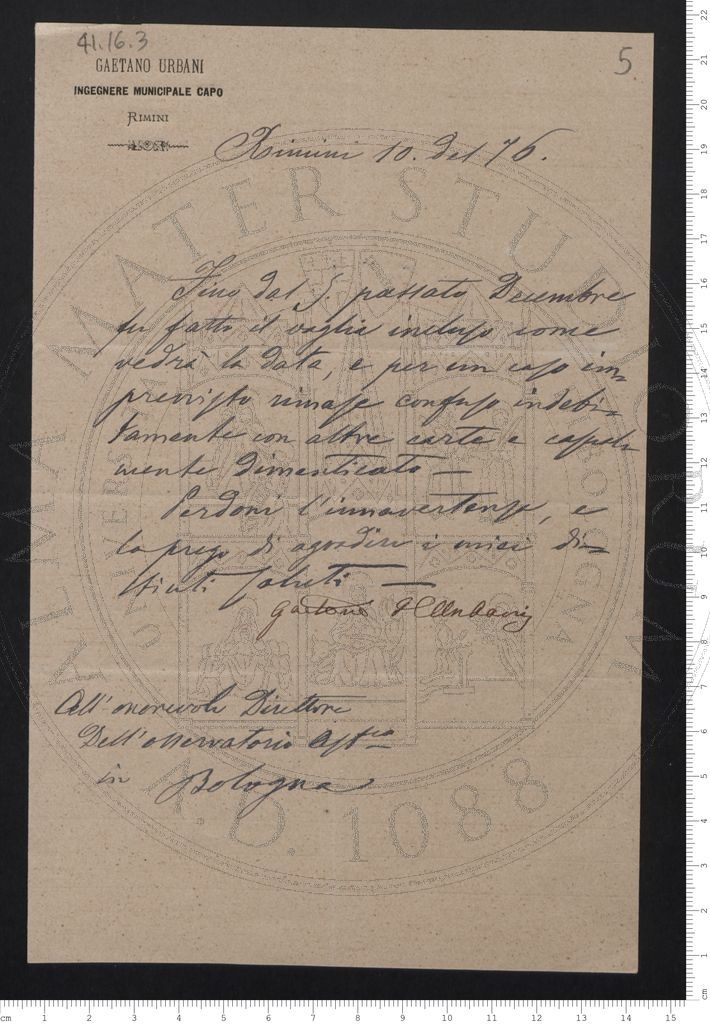 41.16.3
5
GAETANO URBANI
INGEGNERE MUNICIPALE CAPO
RIMINI
Rimini 10. del 76.
Fino dal 5. passato Decembre
fu fatto il vaglia incluso come
vedrà la data, e per un caso im=
previsto rimase confuso indebi=
tamente con altre carte e casual
mente dimenticato —
Perdoni l'innavertenza, e
la prego di aggradire i miei di=
stinti saluti —
Gaetano Urbani
All'onorevole Direttore
Dell'osservatorio
in Bologna
ALMA MATER STUDIORUM
UNIVERS BOLOGNA
A.D. 1088